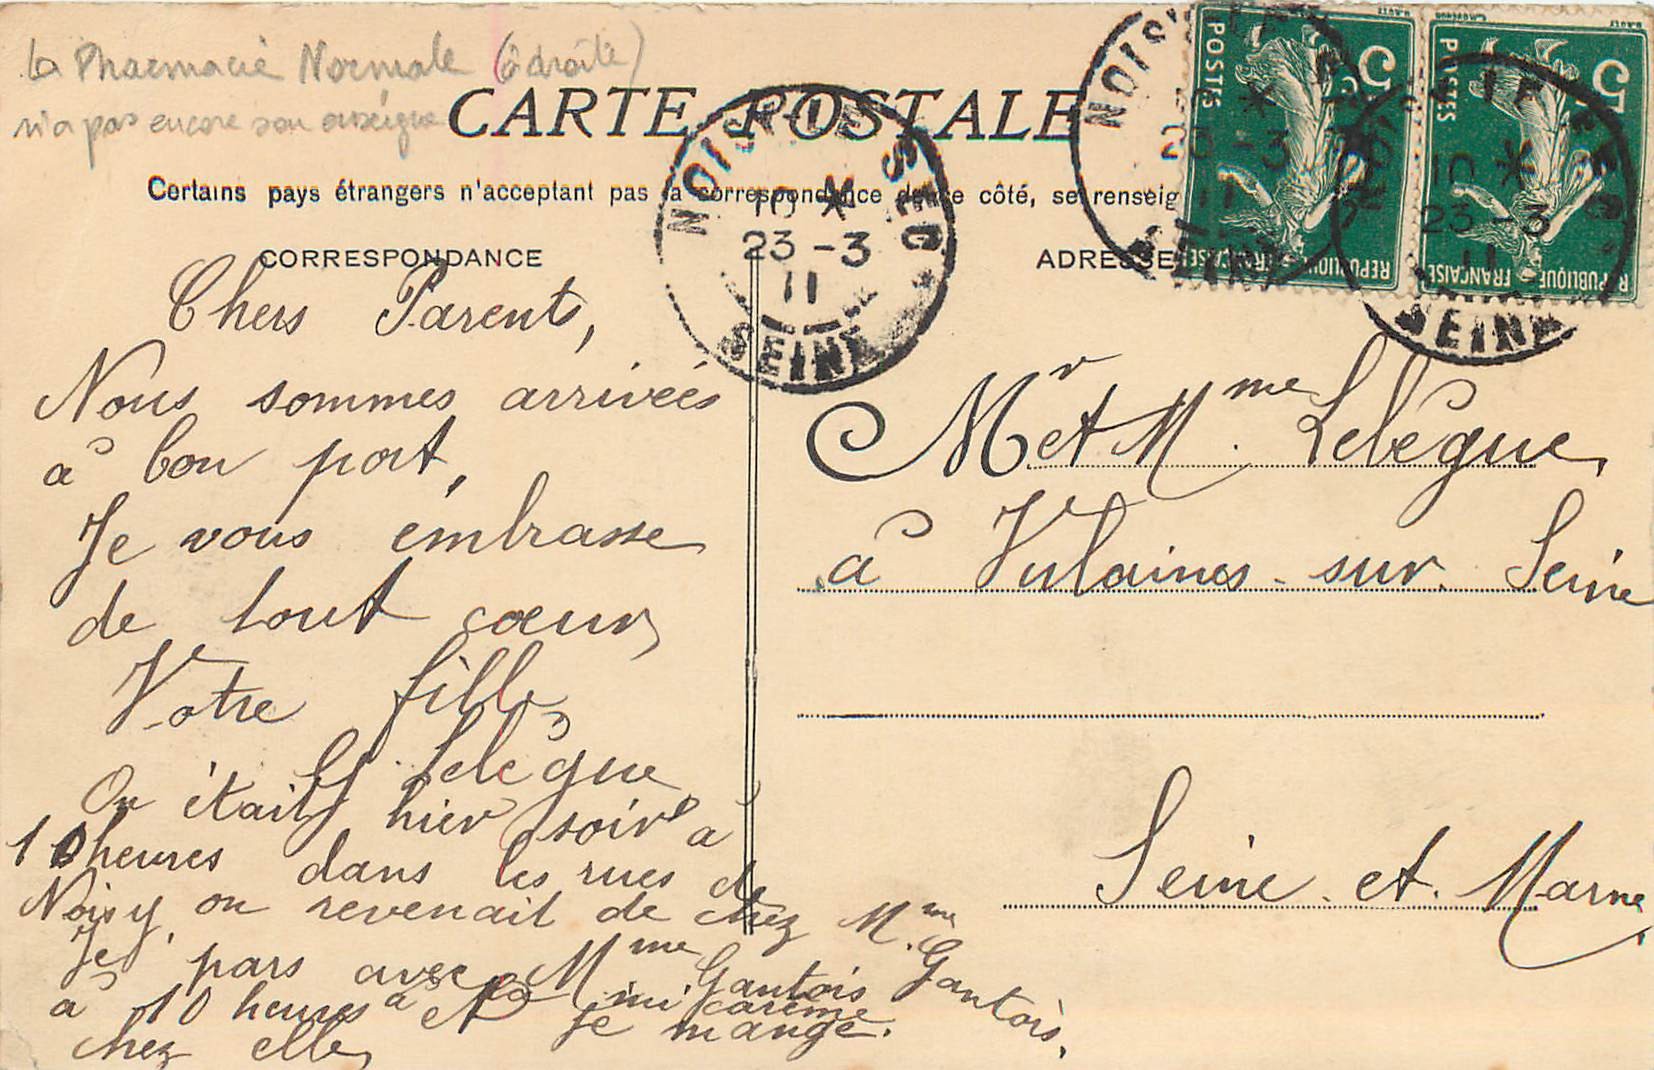 la Pharmacie Normale (à droite)
n'a pas encore son enseigne
CARTE POSTALE
Certains pays étrangers n'acceptant pas la correspondance de ce côté, se renseig
CORRESPONDANCE
Chers Parents,
Nous sommes arrivées
à bon port,
Je vous embrasse
de tout cœur,
Votre fille,
Lebègue
On était hier soir à
10 heures dans les rues de
Noisy, on revenait de chez Mme Gantois,
Je pars avec Mme Gantois
à 10 heures à la mi carême
et je mange
chez elle,
ADRESSE
Mr et Mme Lebègue,
à Vulaines-sur-Seine
Seine-et-Marne,
NOISY-LE-SEC
10 *
23 -3
11
SEINE
NOISY-LE
*
23 -3
11
SEINE
NOISY-LE-SEC
10 *
23 -3
11
SEINE
5c
POSTES
REPUBLIQUE FRANÇAISE
5
POSTES
REPUBLIQUE FRANÇAISE